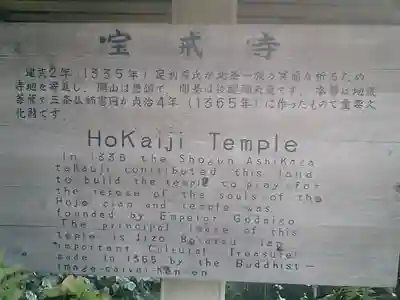 宝戒寺
建武2年(1335年)足利尊氏が北条一族の冥福を祈るため
寺地を寄進し、開山は恵鎮で、開基は後醍醐天皇です。本尊は地蔵
菩薩で三条仏師憲円が貞治4年(1365年)に作ったもので重要文
化財です。
HoKaiji Temple
In 1335 the Shogun Ashikaga
Takauji contributed this land
to build the temple to pray for
the repose of the souls of the
Hojo clan and temple was
founded by Emperor Godaigo
The principal image of this
Temple is Jizo Bosatsu (an
important Cultural Treasure)
made in 1365 by the Buddhist-
image-carver Ken on